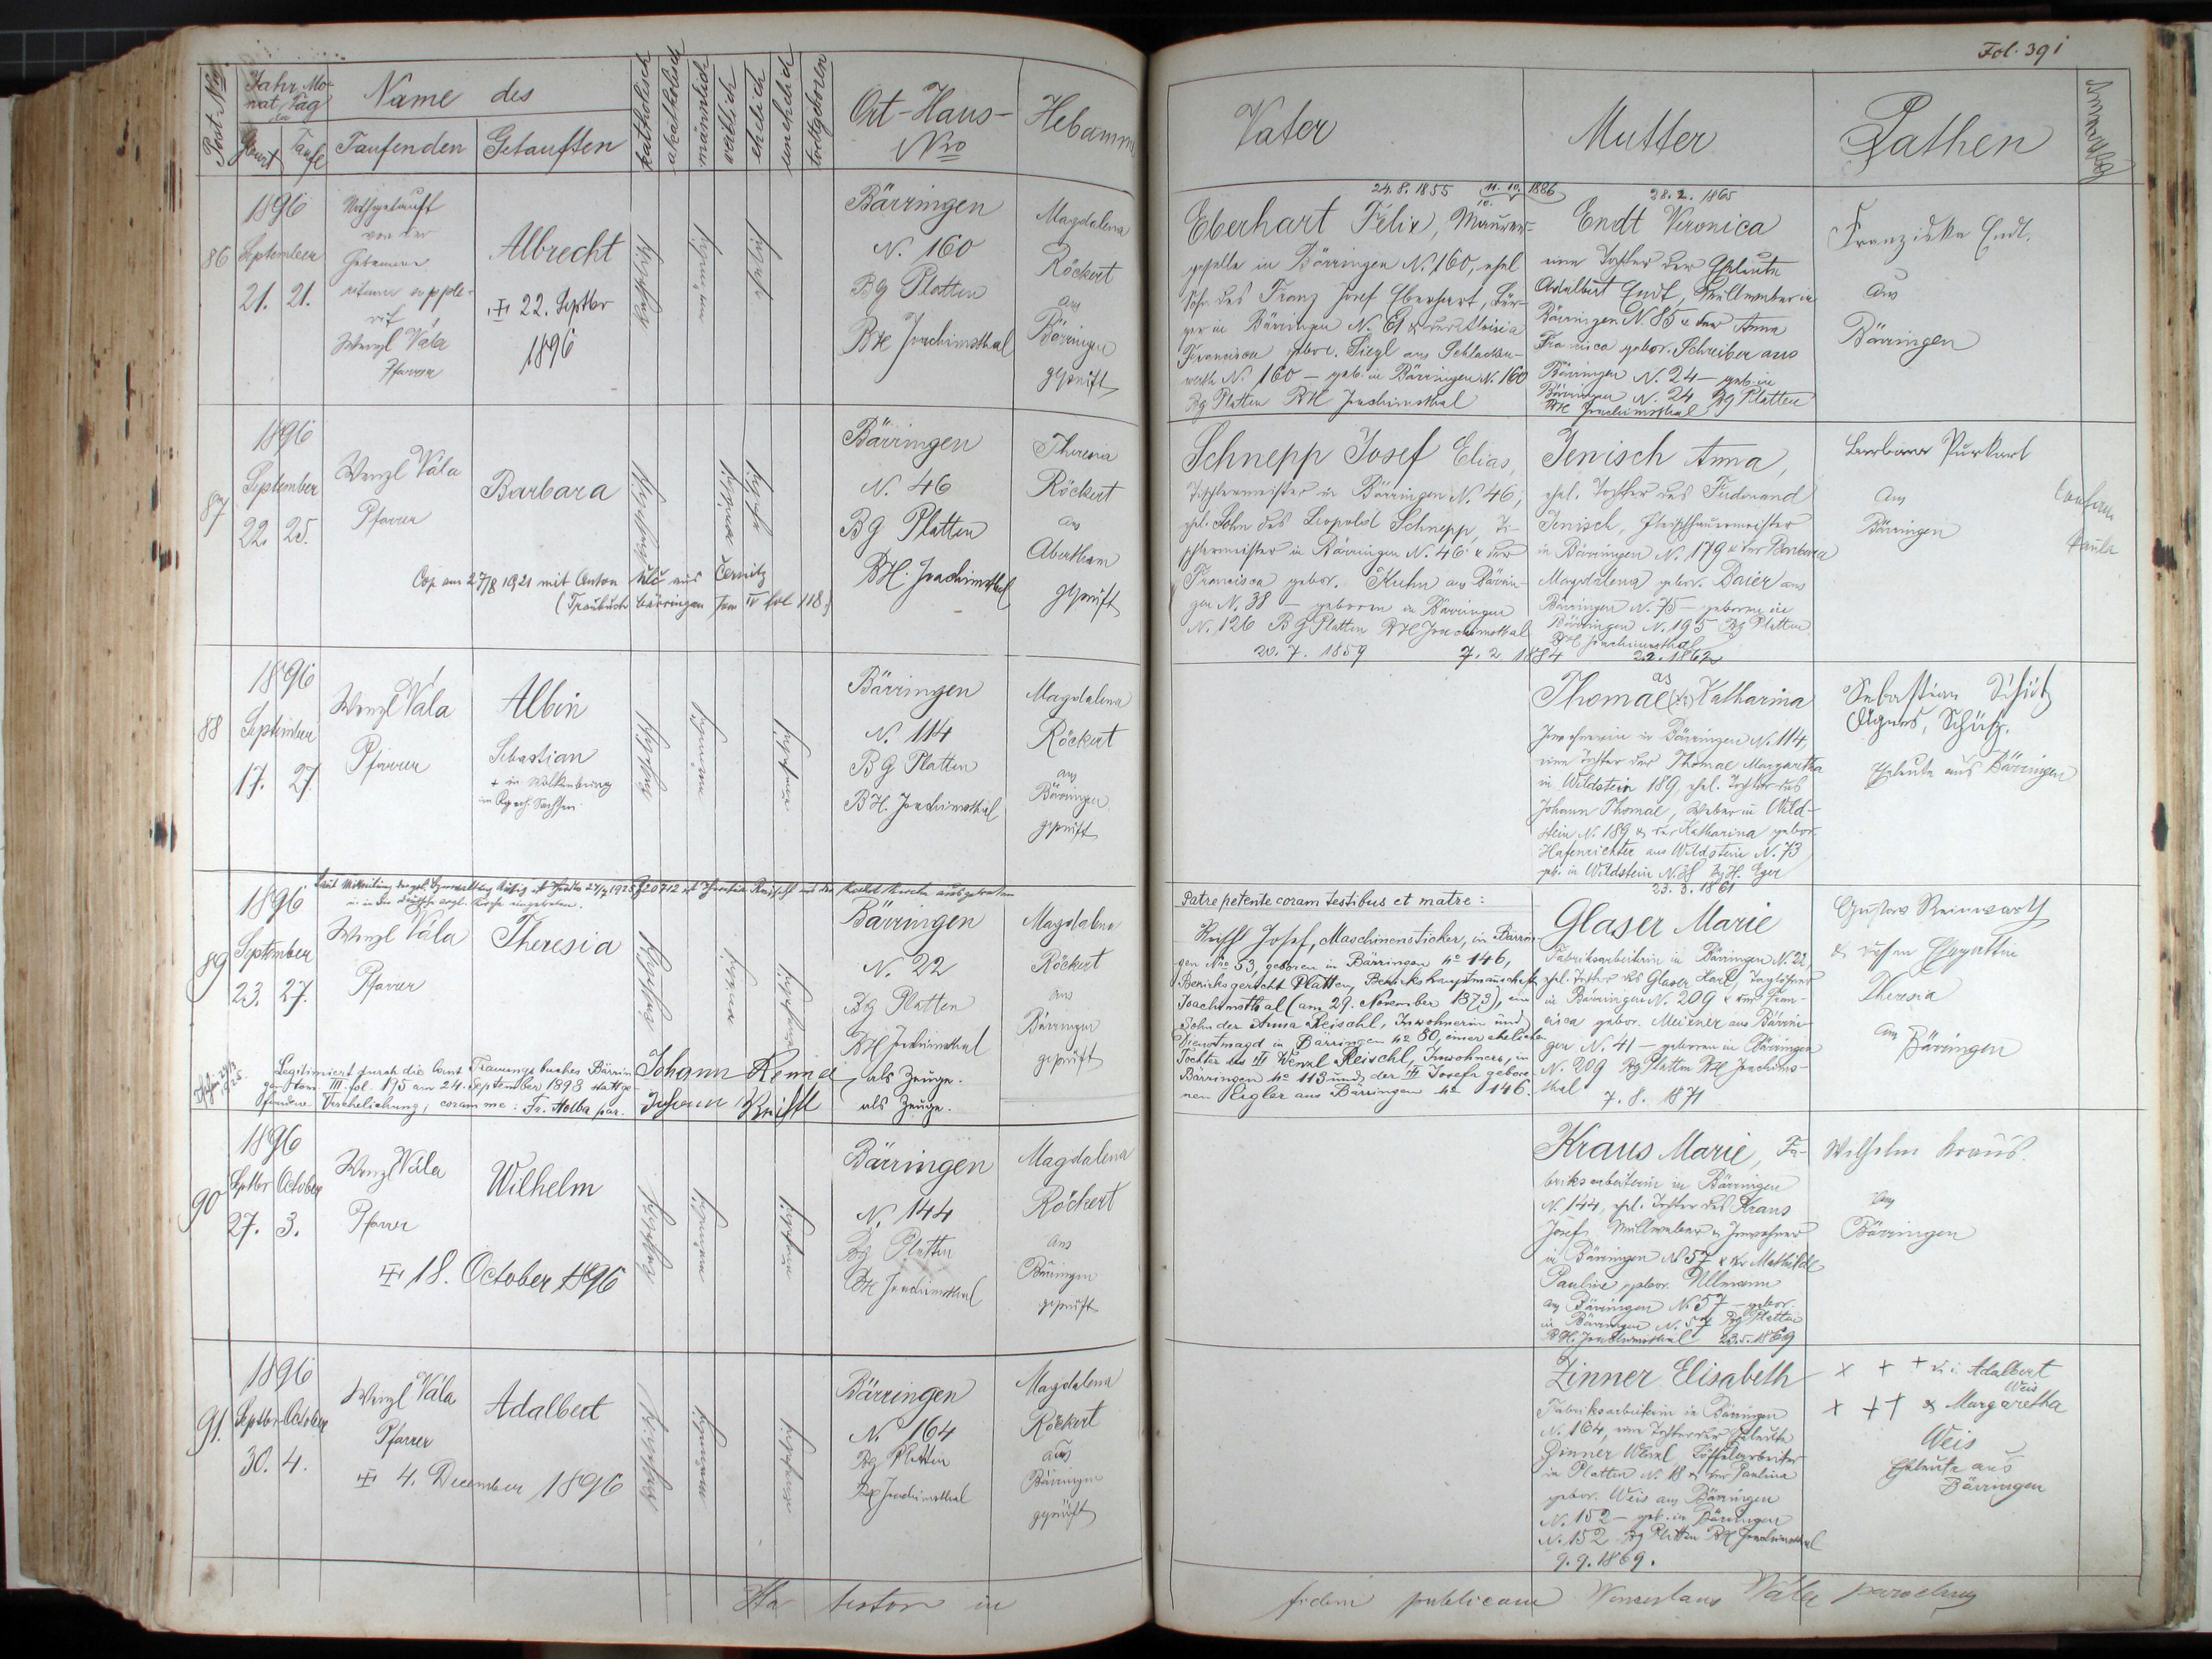 Fol. 391
Post-Nro.
Jahr, Mo-
nat, Tag
der
Geburt
Taufe
Name des
Taufenden
Getauften
katholisch
akatholisch
männlich
weiblich
ehelich
unehelich
todtgeboren
Ort-Haus-
Nro
Hebamme
Vater
Mutter
Pathen
Anmerkung
86
1896
September
21. 21.
Nothgetauft
von der
Hebamme
ritum supple-
vit
Wenzl Vála
Pfarrer
Albrecht
22. Septbr
1896
katholisch
männlich
ehelich
Bärringen
N. 160
Bg Platten
BH Joachimsthal
Magdalena
Röckert
aus
Bärringen
geprüft
24.8.1855
11. 10. 1886
Eberhart Felix, Maurer-
geselle in Bärringen N. 160, ehel
Sohn des Franz Josef Eberhart, Bür-
ger in Bärringen N. 61 & der Aloisia
Francisca gebor. Siegl aus Schlacken-
werth N. 160 – geb. in Bärringen N. 160
Bg Platten BH Joachimsthal
28.2.1865
Endt Veronica
eine Tochter der Eheleute
Adalbert Endt, in
Bärringen N. 85 & der Anna
Francisca gebor. Schreiber aus
Bärringen N. 24 – geb. in
Bärringen N. 24 Bg Platten
BH Joachimsthal
Franziska Endt.
aus
Bärringen
87
1896
September
22. 25.
Wenzl Vála
Pfarrer
Barbara
katholisch
weiblich
ehelich
Cop. am 27/8 1921 mit Anton aus
(Traubuch Bärringen tom IV fol 118.)
Bärringen
N. 46
BG Platten
BH. Joachimsthal
Theresia
Röckert
aus
Abertham
geprüft
Schnepp Josef Elias,
Tischlermeister in Bärringen N. 46,
ehl. Sohn des Leopold Schnepp, Ti-
schlermeister in Bärringen N. 46 & der
Francisca gebor. Kuhn aus Bärrin-
gen N. 38 – geboren in Bärringen
N. 126 BG Platten BH Joachimsthal
20.7.1859
7.2.1884
Jenisch Anna,
ehel. Tochter des Ferdinand
Jenisch, Fleischhauermeister
in Bärringen N. 179 & der Barbara
Magdalena gebor. Baier aus
Bärringen N. 75 – geboren in
Bärringen N. 195 Bg Platten
BH Joachimsthal
Barbara Purkart
aus
Bärringen
88
1896
September
17. 27.
Wenzl Vála
Pfarrer
Albin
Sebastian
+ in Wolkenburg
im Kgrch. Sachsen
katholisch
männlich
unehelich
Bärringen
N. 114
BG Platten
BH. Joachimsthal
Magdalena
Röckert
aus
Bärringen
geprüft
as
Thomae Katharina
Inwohnerin in Bärringen N. 114,
eine Tochter der Thomae Margaretha
in Wildstein 189, ehel. Tochter des
Johann Thomae, Weber in Wild-
stein N. 189 & der Katharina gebor.
Hafenrichter aus Wildstein N. 73
geb. in Wildstein BH. Eger
23.3.1861
Sebastian Schütz
Agnes, Schütz.
Eheleute aus Bärringen
89
1896
September
23. 27.
Wenzl Vála
Pfarrer
Theresia
katholisch
weiblich
unehelich
Bärringen
N. 22
Bg Platten
BH Joachimsthal
Magdalena
Röckert
aus
Bärringen
geprüft
Legitimiert durch die laut Trauungsbuches Bärrin-
gen tom. III. fol. 195 am 24. September 1898 stattge-
fundene Verehelichung; coram me: Fr. Holba par.
Johann , als Zeuge.
Johann Reischl als Zeuge.
Patre petente coram testibus et matre:
Reischl Josef, Maschinensticker, in Bärrin-
gen Nro 53, geboren in Bärringen No 146,
Bezirksgericht Platten, Bezirkshauptmannschaft
Joachimsthal (am 29. November 1873), ein
Sohn der Anna Reischl, Inwohnerin und
Dienstmagd in Bärringen No 80, einer ehelichen
Tochter des Wenzl Reischl, Inwohners, in
Bärringen No 113 und der Josefa gebore-
nen Rigler aus Bärringen No 146.
Glaser Marie
Fabriksarbeiterin in Bärringen N. 22,
ehel. Tochter des Glaser Karl, Taglöhner
in Bärringen N. 209 & der Fran-
cisca gebor. Meixner aus Bärrin-
gen N. 41 – geboren in Bärringen
N. 209 Bg Platten BH Joachims-
thal
7.8.1871
Gustav Reinwarth
& dessen Ehegattin
Theresia
aus Bärringen
90
1896
Septbr October
27. 3.
Wenzl Vála
Pfarrer
Wilhelm
18. October 1896
katholisch
männlich
unehelich
Bärringen
N. 144
Bg Platten
BH Joachimsthal
Magdalena
Röckert
aus
Bärringen
geprüft
Kraus Marie, Fa-
briksarbeiterin in Bärringen
N. 144, ehel. Tochter des Kraus
Josef, & Inwohner
in Bärringen N. 57 & der Mathilde
Pauline gebor. Ullmann
aus Bärringen N. 57 – gebor.
in Bärringen N. 57 Bg Platten
BH. Joachimsthal 23.5.1869
Wilhelm Kraus.
aus
Bärringen
91.
1896
Septbr October
30. 4.
Wenzl Vála
Pfarrer
Adalbert
4. December 1896
katholisch
männlich
unehelich
Bärringen
N. 164
Bg Platten
BH Joachimsthal
Magdalena
Röckert
aus
Bärringen
geprüft
Zinner Elisabeth
Fabriksarbeiterin in Bärringen
N. 164, eine Tochter der Eheleute
Zinner Wenzl, Löffelarbeiter
in Platten N. 18 & der Paulina
gebor. Weis aus Bärringen
N. 152 – geb. in Bärringen
N. 152 Bg Platten BH Joachimsthal
9.9.1869.
+ + + Adalbert
Weis
+ + + & Margaretha
Weis
Eheleute aus
Bärringen
Ita testor in fidem publicam Wenceslaus Vála parochus